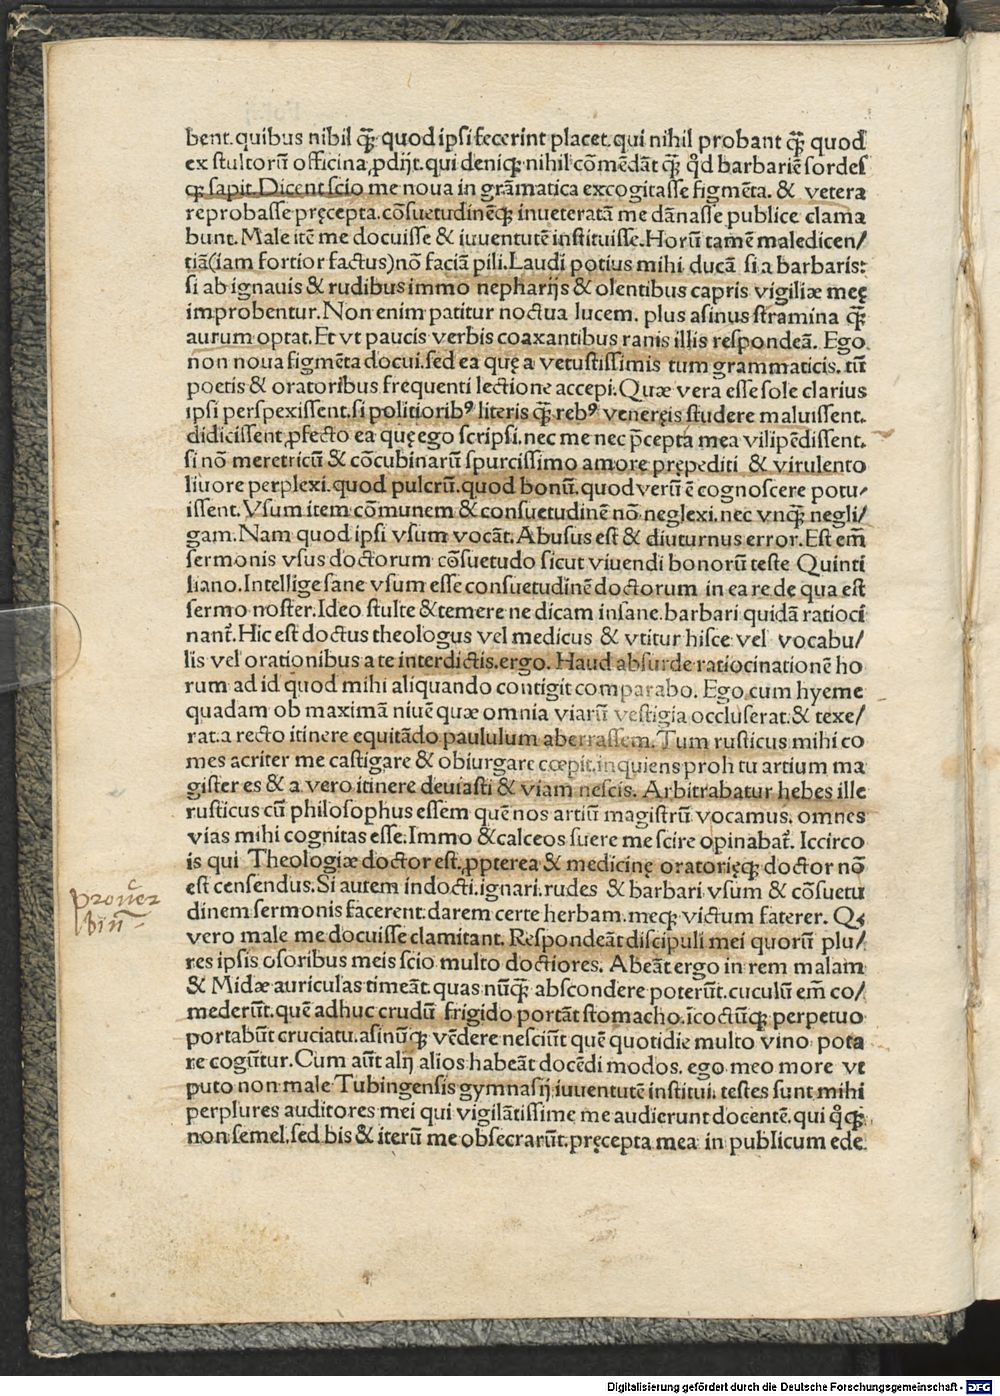 bent. quibus nihil qꝫ̄ quod ipsi fecerint placet. qui nihil probant qꝫ̄ quod
ex stultorū officina ꝓdijt. qui deniqꝫ nihil cōmēdāt qꝫ̄ qd̕ barbariē sordes
qꝫ sapit. Dicent scio me noua in grāmatica excogitasse figmēta. & vetera
reprobasse pręcepta. cōsuetudinēqꝫ inueteratā me dānasse publice clama
bunt. Male itē me docuisse & iuuentutē instituisse. Horū tamē maledicen/
tiā (iam fortior factus) nō faciā pili. Laudi potius mihi ducā si a barbaris:
si ab ignauis & rudibus immo nepharijs & olentibus capris vigiliæ meę
improbentur. Non enim patitur noctua lucem. plus asinus stramina qꝫ̄
aurum optat. Et vt paucis verbis coaxantibus ranis illis respondeā. Ego
non noua figmēta docui. sed ea quę a vetustissimis tum grammaticis. tū
poetis & oratoribus frequenti lectione accepi. Quæ vera esse sole clarius
ipsi perspexissent. si politioribꝰ literis qꝫ̄ rebꝰ venereis studere maluissent.
didicissent ꝓfecto ea quę ego scripsi. nec me nec p̄cepta mea vilipēdissent.
si nō meretricū & cōcubinarū spurcissimo amore prępediti & virulento
liuore perplexi. quod pulcrū. quod bonū. quod verū ē cognoscere potu/
issent. Vsum item cōmunem & consuetudinē nō neglexi. nec vnqꝫ̄ negli/
gam. Nam quod ipsi vsum vocāt. Abusus est & diuturnus error. Est em̄
sermonis vsus doctorum cōsuetudo sicut viuendi bonorū teste Quinti
liano. Intellige sane vsum esse consuetudinē doctorum in ea re de qua est
sermo noster. Ideo stulte & temere ne dicam insane. barbari quidā ratioci
nant̄. Hic est doctus theologus vel medicus & vtitur hisce vel vocabu/
lis vel orationibus a te interdictis. ergo. Haud absurde ratiocinationē ho
rum ad id quod mihi aliquando contigit comparabo. Ego cum hyeme
quadam ob maximā niuē quæ omnia viarū vestigia occluserat. & texe/
rat. a recto itinere equitādo paululum aberrassem. Tum rusticus mihi co
mes acriter me castigare & obiurgare cœpit. inquiens proh tu artium ma
gister es & a vero itinere deuiasti & viam nescis. Arbitrabatur hebes ille
rusticus cū philosophus essem quē nos artiū magistrū vocamus. omnes
vias mihi cognitas esse. Immo & calceos suere me scire opinabat̄. Iccirco
is qui Theologiæ doctor est. ꝓpterea & medicinę oratorięqꝫ doctor nō
est censendus. Si autem indocti. ignari. rudes & barbari vsum & cōsuetu
dinem sermonis facerent. darem certe herbam. meqꝫ victum faterer. Qꝫ
vero male me docuisse clamitant. Respondeāt discipuli mei quorū plu/
res ipsis osoribus meis scio multo doctiores. Abeāt ergo in rem malam
& Midæ auriculas timeāt. quas nūqꝫ̄ abscondere poterūt. cuculū em̄ co/
mederūt. quē adhuc crudū frigido portāt stomacho. īcoctūqꝫ perpetuo
portabūt cruciatu. asinūqꝫ vēdere nesciūt quē quotidie multo vino pota
re cogūtur. Cum aūt alij alios habeāt docēdi modos. ego meo more vt
puto non male Tubingensis gymnasij iuuentutē institui. testes sunt mihi
perplures auditores mei qui vigilātissime me audierunt docentē. qui qͥqꝫ
non semel. sed bis & iterū me obsecrarūt. pręcepta mea in publicum ede
prouer
biū
Digitalisierung gefördert durch die Deutsche Forschungsgemeinschaft - DFG